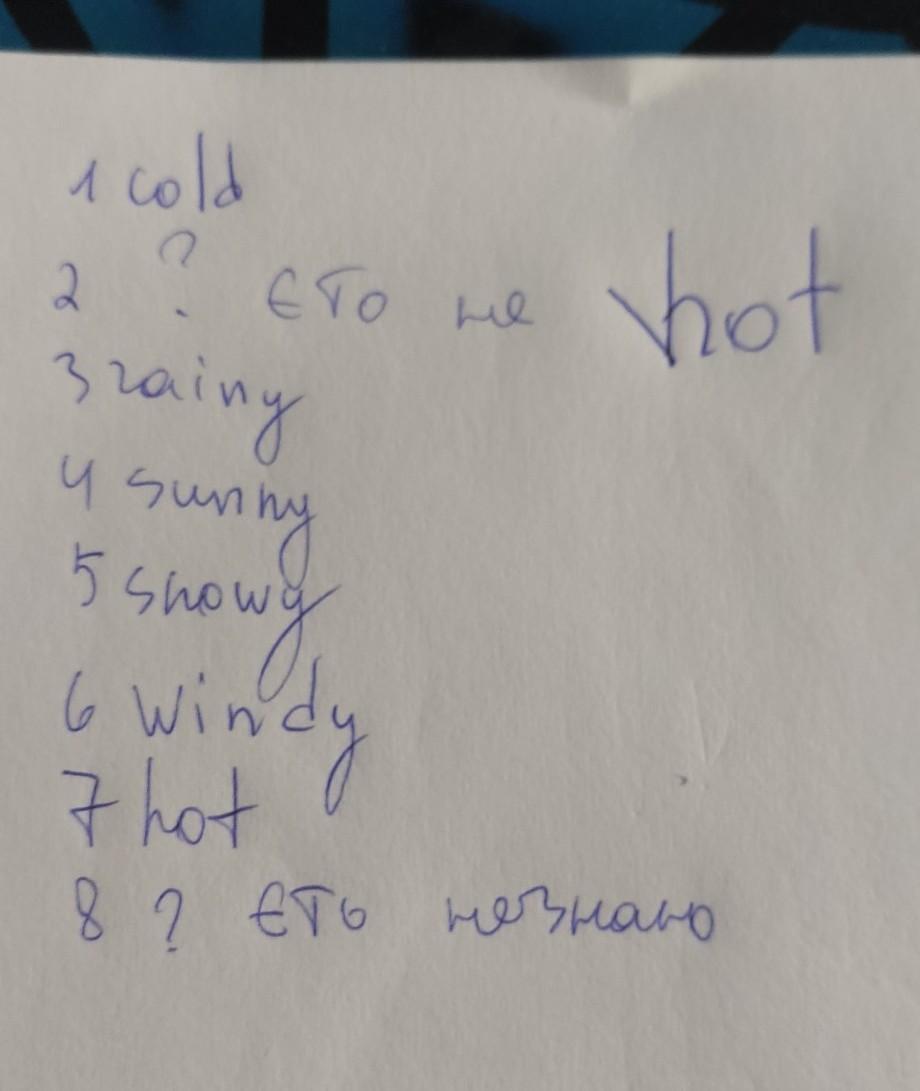 1 cold
2 ? ЄТо не hot
3 rainy
4 sunny
5 snowy
6 windy
7 hot
8 ? ЄТо незнаю